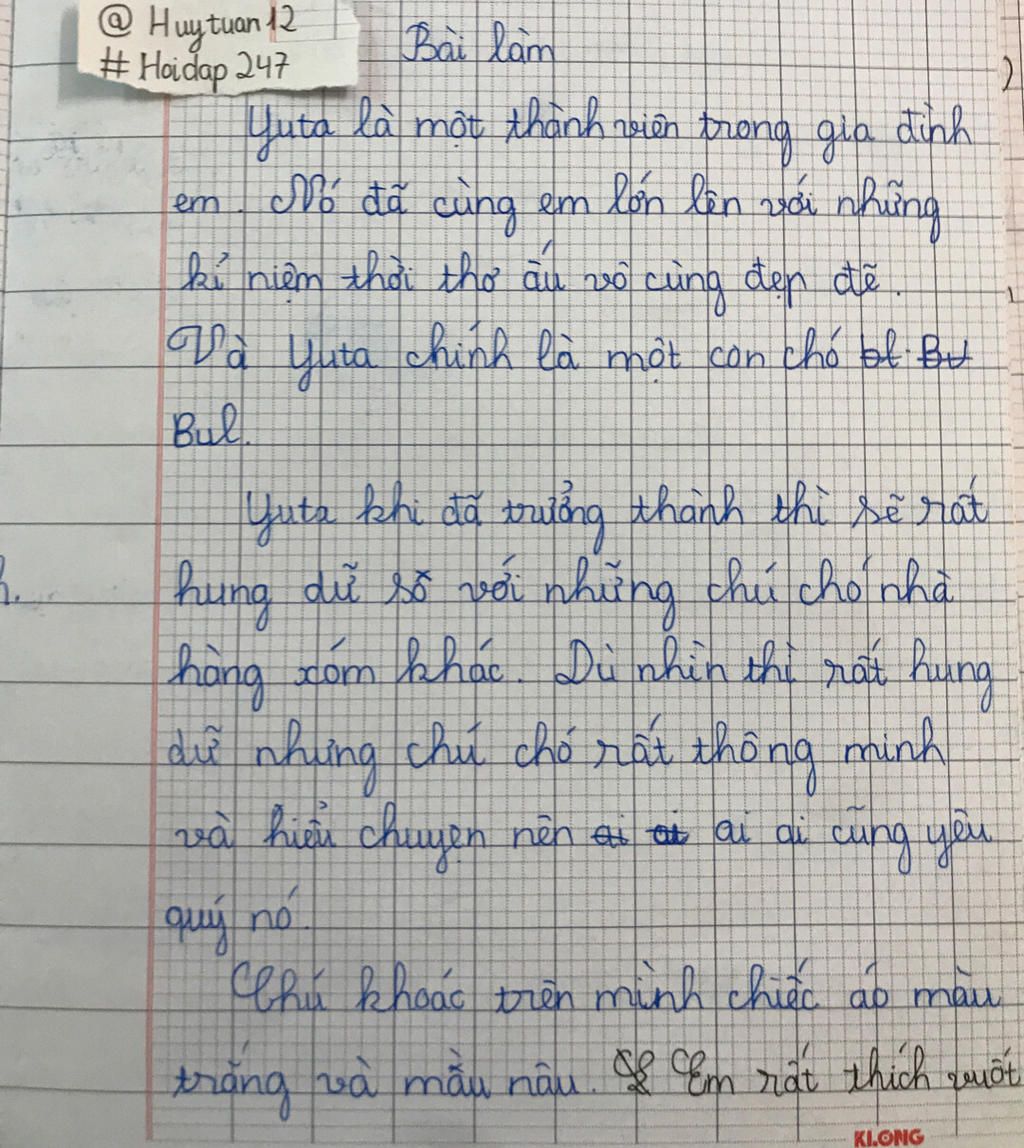 @ Huytuan12
# Hoidap 247
Bài làm
Yuta là một thành viên trong gia đình
em. Nó đã cùng em lớn lên với những
kỉ niệm thời thơ ấu vô cùng đẹp đẽ.
Và Yuta chính là một con chó bl Bu
Bul.
Yuta khi đã trưởng thành thì sẽ rất
hung dữ sõ với những chú chó nhà
hàng xóm khác. Dù nhìn thì rất hung
dữ nhưng chú chó rất thông minh
và hiểu chuyện nên ai ai ai ai cũng yêu
quý nó.
Chú khoác trên mình chiếc áo màu
trắng và mầu nâu. Em rất thích vuốt
KLONG